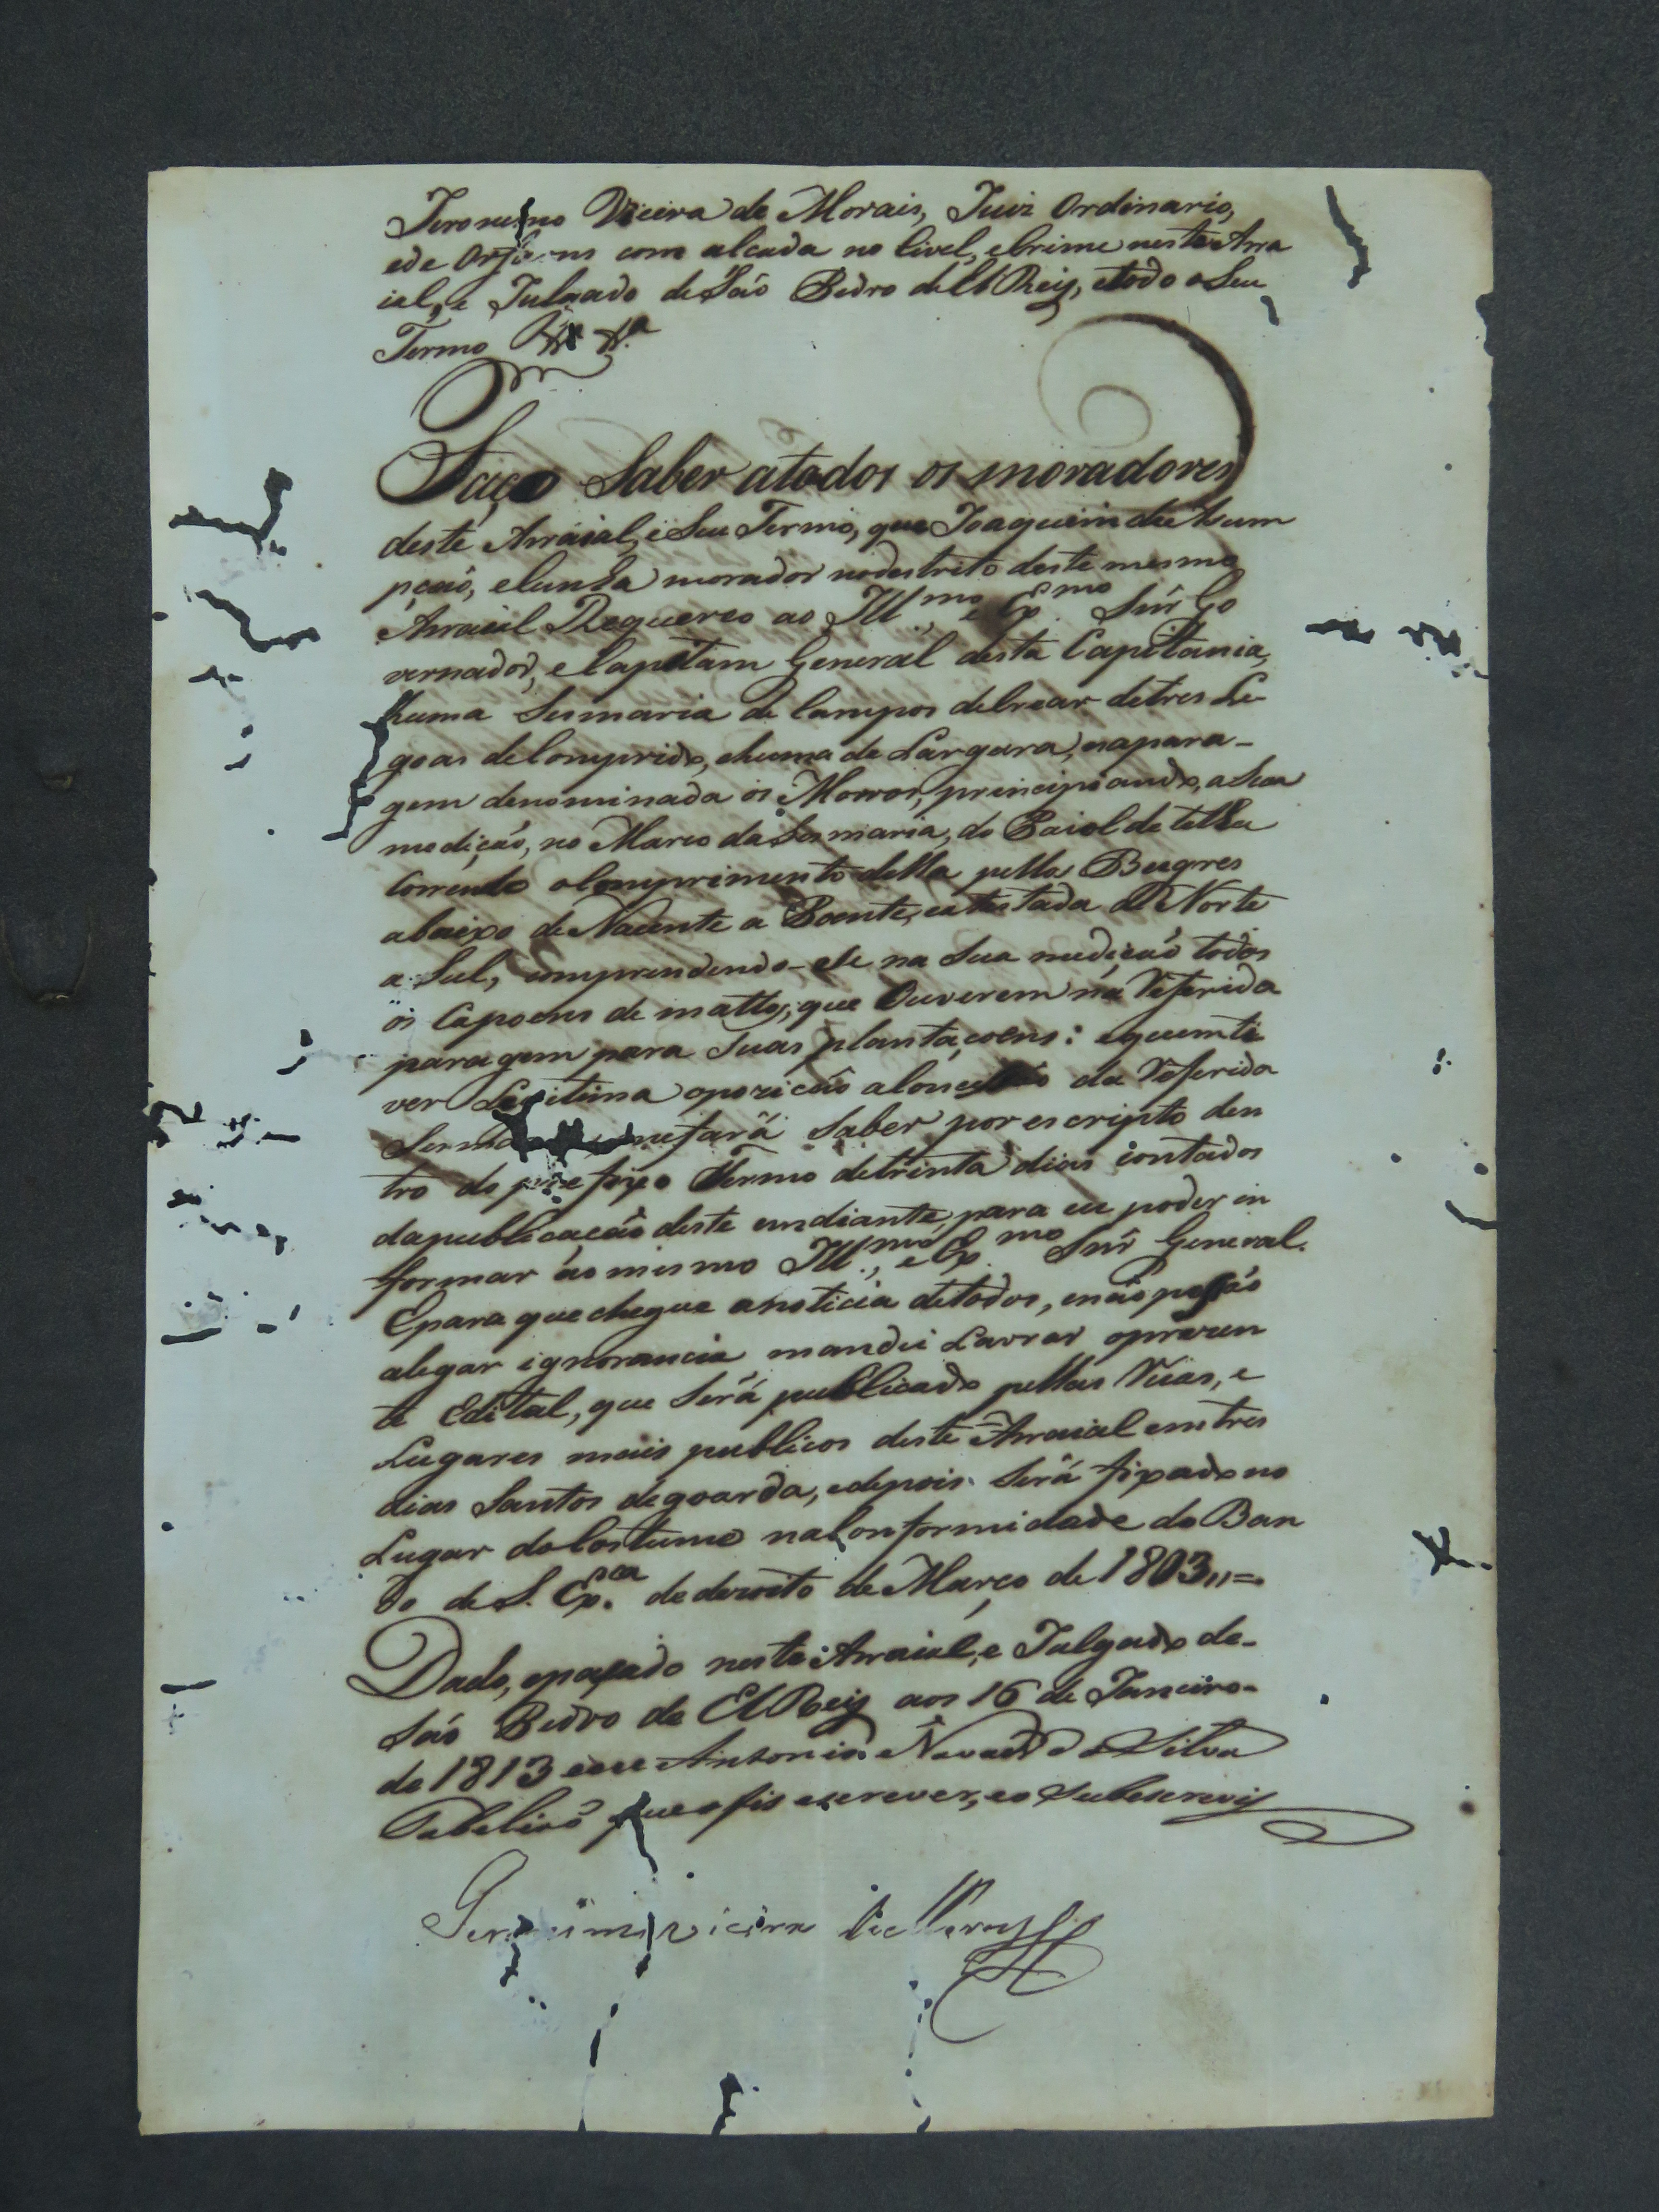 Jeronimo Vieira de Morais, Juiz Ordinario,
ede Orfaons com alcada no Civel, eCrime nesteArra
ial, e Julgado deSaó Pedro delRey, etodo oSeu
Termo
Faço Saber atodos os moradores
deste Arraial, eSeu Termo, que Joaquim da Asum
pçaó, eCunha morador nodestrito deste mesmo
Arraial Requereo ao Ill.mo, e Ex.mo Snr Go
vernador, eCapitam General desta Capitania,
huma Sesmaria de Campos deCrear detres Le
goas deComprido, ehuma de Largura, napara-
gem denominada os Morros, principiando, aSua
mediçaó, no Marco daSesmaria, do Paiol de telha
Correndo oComprimento della pello Bugres
abaixo de Nacente a Poente, eatestada de Norte
a Sul, comprendendo-ele na Sua mediçaó todos
os Capoens de mattos, que Ouverem na Referida
paragem para Suas plantaçoens: equemti
ver Legitima opoziçaó aConcessaó da Referida
Sesma mefará Saber por escripto den
tro do prefixo Termo detrinta dias contados
dapublicaçaó deste emdiante, para eu poder in
formar áo mesmo Ill.mo, e Ex.mo Snr General.
Epara que chegue anoticia detodos, enaó possaó
alegar ignorancia mandei Lavrar oprezen
te Edital, que Será publicado pellas Ruas, e
Lugares mais publicos deste Arraial emtres
dias Santos degoarda, edepois Será fixado no
Lugar doCostume naConformidade do Ban
do de S. Ex.ca de dezoito de Março de 1803,,=
Dado, epassado neste Arraial, e Julgado de-
Saó Pedro de ElRey aos 16 de Janeiro-
de 1813 eeu Antonio Navarro da Silva
Tabeliaó que ofis escrever, eo Subescrevy
Geronimo vieira de Moraes